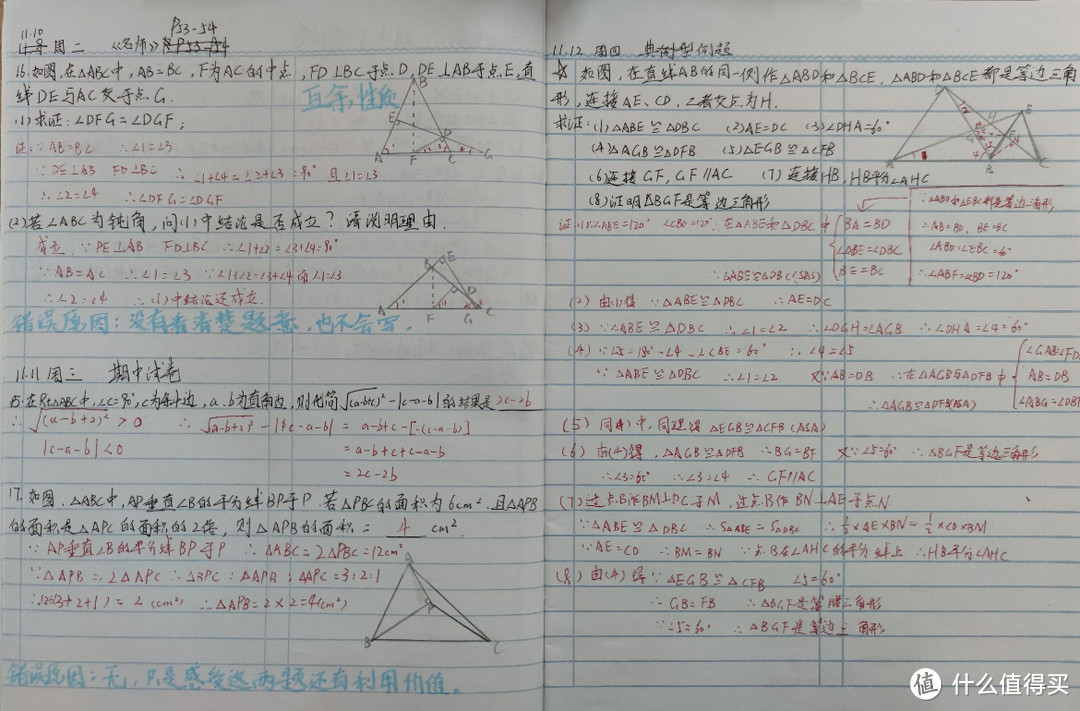 P53-54
11.10 周二 《名师》
16.如图,在△ABC中,AB=BC,F为AC的中点,FD⊥BC于点D,DE⊥AB于点E,直
线DE与AC交于点G.
互余,性质
(1)求证:∠DFG=∠DGF;
证:∵AB=BC ∴∠1=∠3
∵DE⊥AB FD⊥BC ∴∠1+∠4=∠2+∠3=90° 且∠1=∠3
∴∠2=∠4 ∴∠DFG=∠DGF
(2)若∠ABC为钝角,问(1)中结论是否成立?请说明理由.
成立 ∵DE⊥AB FD⊥BC ∴∠1+∠2=∠3+∠4=90°
∵AB=AC ∴∠1=∠3 ∵∠1+∠2=∠3+∠4而∠1=∠3
∴∠2=∠4 ∴(1)中结论还成立.
错误原因:没有看清楚题意,也不会写.
11.11 周三 期中试卷
15.在Rt△ABC中,∠C=90°,c为斜边,a、b为直角边,则化简√(a-b+c)²-|c-a-b|的结果是 2c-2b
∴√(a-b+2)²>0 ∴√(a-b+2)²-|c-a-b| = a-b+c-[-(c-a-b)]
|c-a-b|<0 =a-b+c+c-a-b
=2c-2b
17.如图.△ABC中,AP垂直∠B的平分线BP于P.若△PBC的面积为6cm².且△APB
的面积是△APC的面积的2倍,则△APB的面积= 4 cm²
∵AP垂直∠B的平分线BP于P ∴△ABC=2△PBC=12cm²
∵△APB=2△APC ∴△BPC:△APB:△APC=3:2:1
∴12÷(3+2+1)=2(cm²) ∴△APB=2×2=4(cm²)
错误原因:无,只是感觉这两题还有利用价值.
11.12 周四 典例型例题
如图,在直线AB的同一侧作△ABD和△BCE,△ABD和△BCE都是等边三角
形,连接AE、CD,二者交点为H.
求证:(1)△ABE≌△DBC (2)AE=DC (3)∠DHA=60°
(4)△AGB≌△DFB (5)△EGB≌△CFB
(6)连接GF,GF//AC (7)连接HB,HB平分∠AHC
(8)证明△BGF是等边三角形
证:(1)∵∠ABE=120° ∠CBD=120° ∴在△ABE和△DBC中 { BA=BD ∠ABE=∠DBC BE=BC
∵△ABD和△EBC都是等边三角形
∴AB=BD,BE=BC
∠ABD=∠EBC=60°
∴∠ABE=∠CBD=120°
∴△ABE≌△DBC(SAS)
(2)由(1)得 ∵△ABE≌△DBC ∴AE=DC
(3)∵△ABE≌△DBC ∴∠1=∠2 ∴∠DGH=∠AGB ∴∠DHA=∠4=60°
(4)∵∠5=180°-∠4-∠CBE=60° ∴∠4=∠5
∵△ABE≌△DBC ∴∠1=∠2 又∵AB=DB ∴在△AGB与△DFB中 { ∠GAB=∠FD AB=DB ∠ABG=∠DB
∴△AGB≌△DFB(ASA)
(5)同(4)中,同理得△EGB≌△CFB(ASA)
(6)由(4)得,△AGB≌△DFB ∴BG=BF 又∵∠5=60° ∴△BGF是等边三角形
∴∠3=60° ∴∠3=∠4 ∴GF//AC
(7)过点B作BM⊥DC于M,过点B作BN⊥AE于点N
∵△ABE≌△DBC ∴S△ABE=S△DBC ∴½×AE×BN=½×CD×BM
∵AE=CD ∴BM=BN ∴点B在∠AHC的平分线上 ∴HB平分∠AHC
(8)由(4)得∵△EGB≌△CFB ∠5=60°
∴GB=FB ∴△BGF是等腰三角形
∵∠5=60° ∴△BGF是等边三角形
值 什么值得买